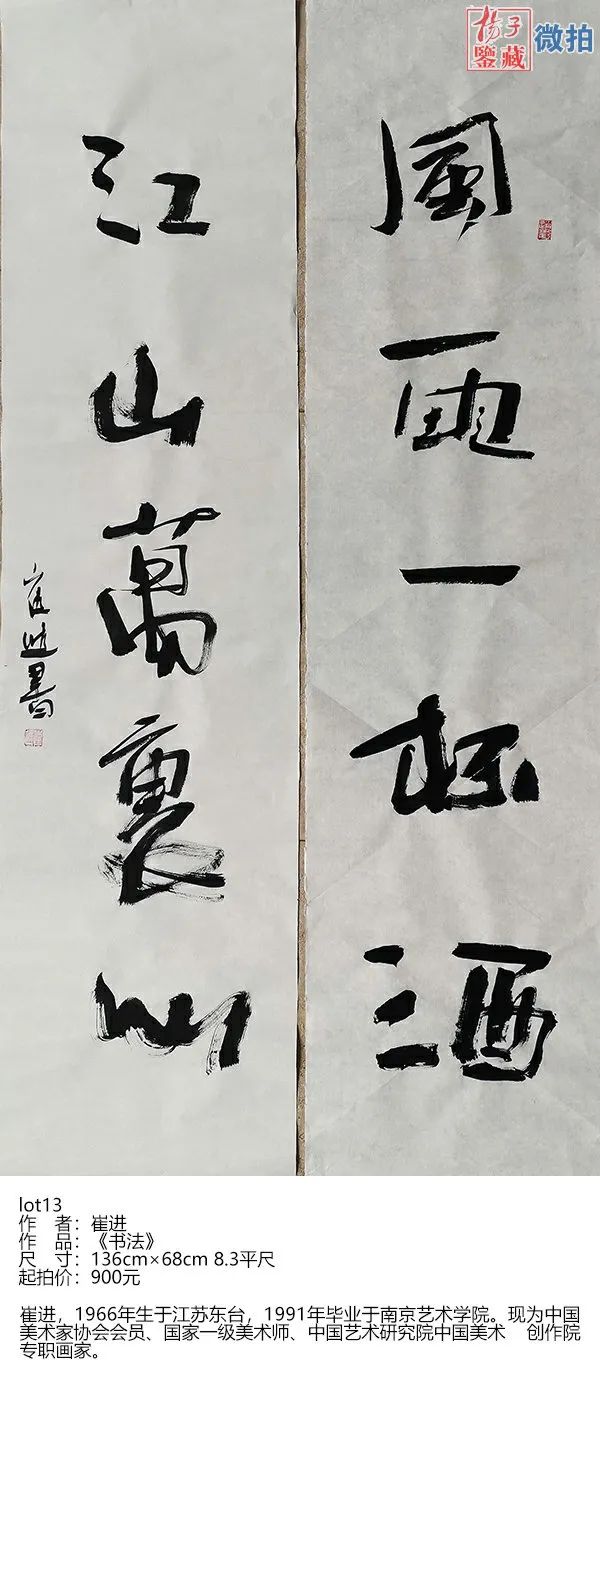 揚子
鑒藏
微拍
風雨一杯酒
江山萬裏心
崔进書
lot13
作 者：崔进
作 品：《书法》
尺 寸：136cm×68cm 8.3平尺
起拍价：900元
崔进，1966年生于江苏东台，1991年毕业于南京艺术学院。现为中国
美术家协会会员、国家一级美术师、中国艺术研究院中国美术 创作院
专职画家。